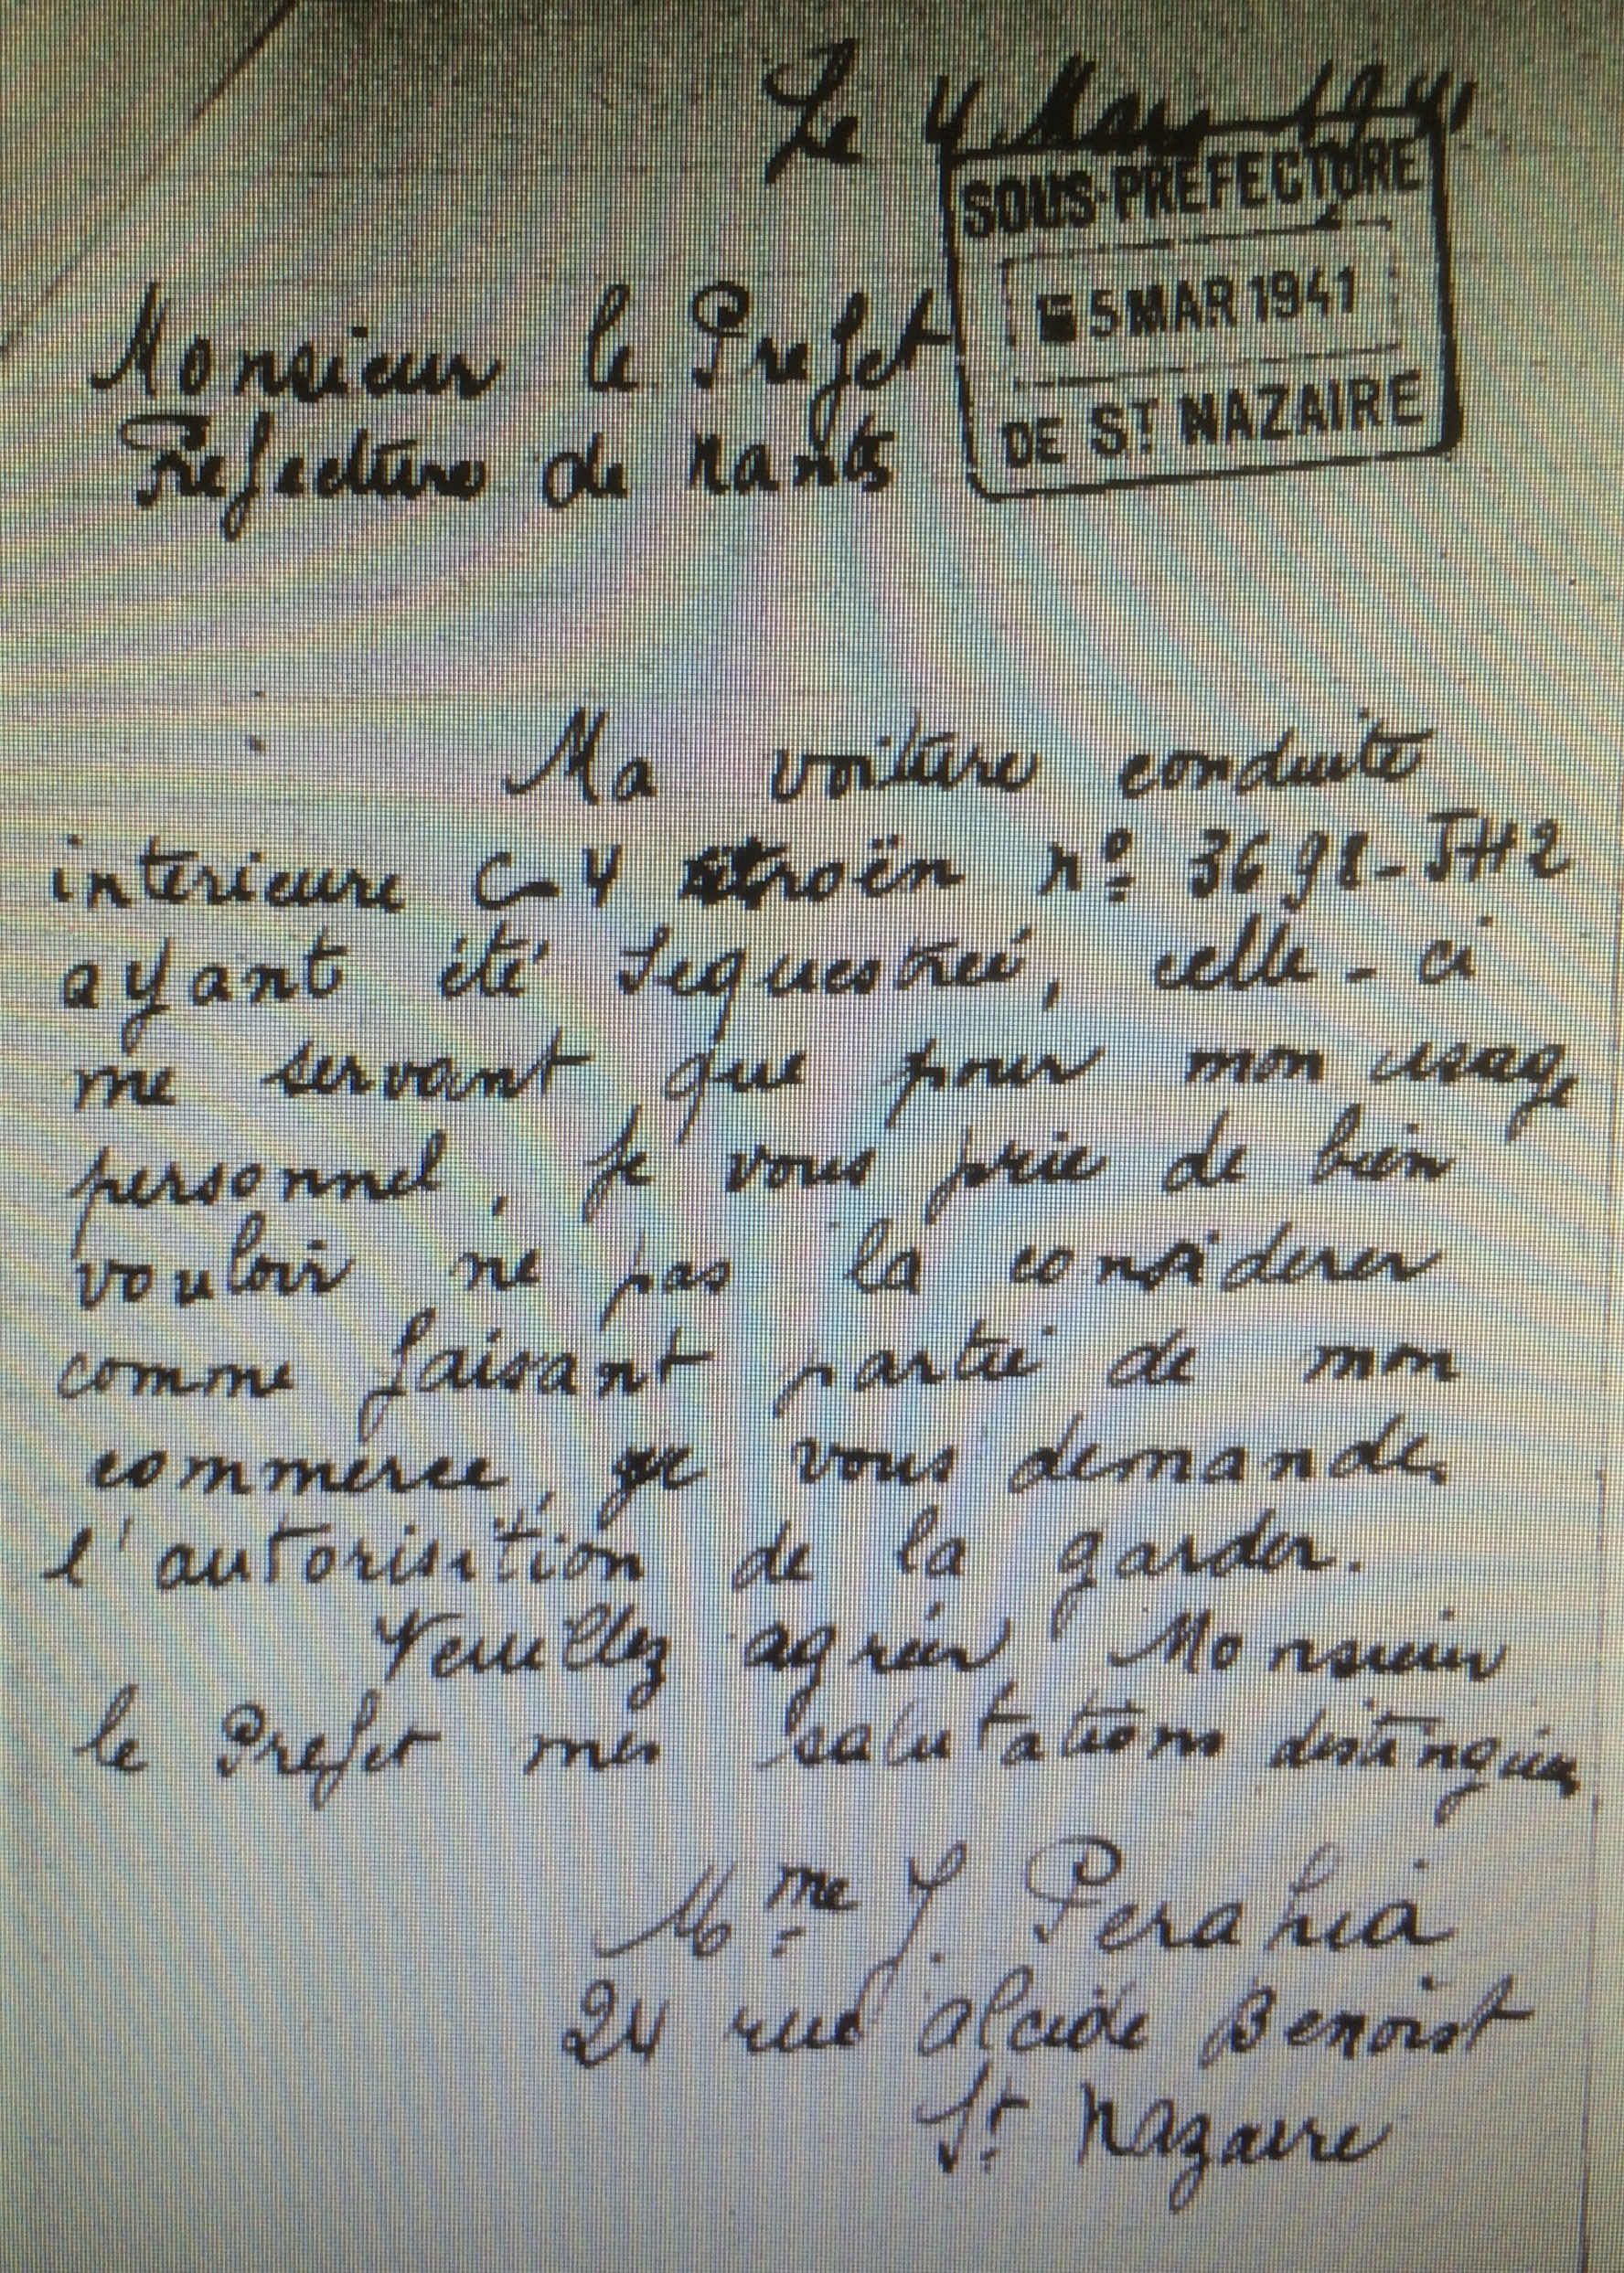 Le 4 Mars 1941
SOUS-PREFECTURE
5 MAR 1941
DE ST NAZAIRE
Monsieur le Prefet
Prefecture de Nantes
Ma voiture conduite
interieure C-4 Citroën nº 3698-JH2
ayant été sequestreé, celle-ci
me servant que pour mon usage
personnel, je vous prie de bien
vouloir ne pas la considerer
comme faisant partie de mon
commerce, je vous demande
l'autorisation de la garder.
Veuillez agréer Monsieur
le Prefet mes salutations distinguées
Mme J. Perahia
24 rue Alcide Benoist
St Nazaire